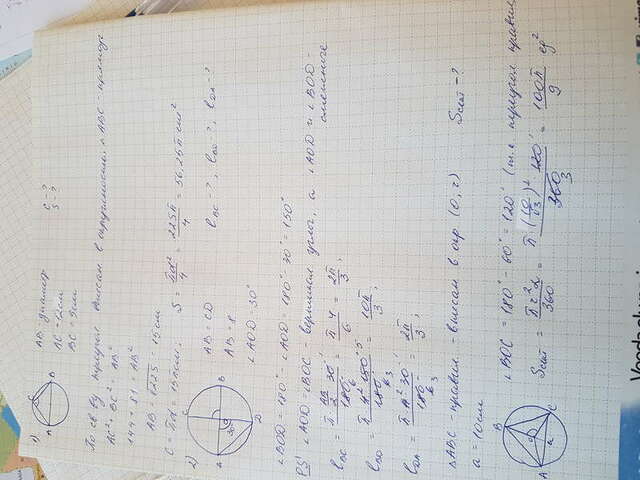 1)
C
A
B
AB - диаметр
AC = 12 см
BC = 9 см
C - ?
S - ?
По св-ву треугол. вписан в окружность, △ABC - прямоуг
AC² + BC² = AB²
144 + 81 = AB²
AB = √225 = 15 см
C = πd = 15π см; S = πd²/4 = 225π/4 = 56,25π см²
2)
C
A
B
O
30°
D
AB = CD
AB = 8
∠AOD = 30°
ℓBC - ?, ℓBD - ?, ℓDA - ?
∠BOD = 180° - ∠AOD = 180° - 30° = 150°
PS! ∠AOD = ∠BOC - вертикал углы, а ∠AOD и ∠BOD -
смежные
ℓBC = π · AB/2 · 30° / 180° = π 4 / 6 = 2π/3;
ℓBD = π · 4 · 150° / 180° = 10π/3;
ℓDA = π · 4 · 30° / 180° = 2π/3;
△ABC - правил. - вписан в окр (O, r)
Sсект - ?
a = 10 см
B
A
C
O
a
∠BOC = 180° - 60° = 120° (т.к. треугол правил
Sсект = πr²α/360 = π · (10/√3)² 120 / 360 = 100π/9 ед²